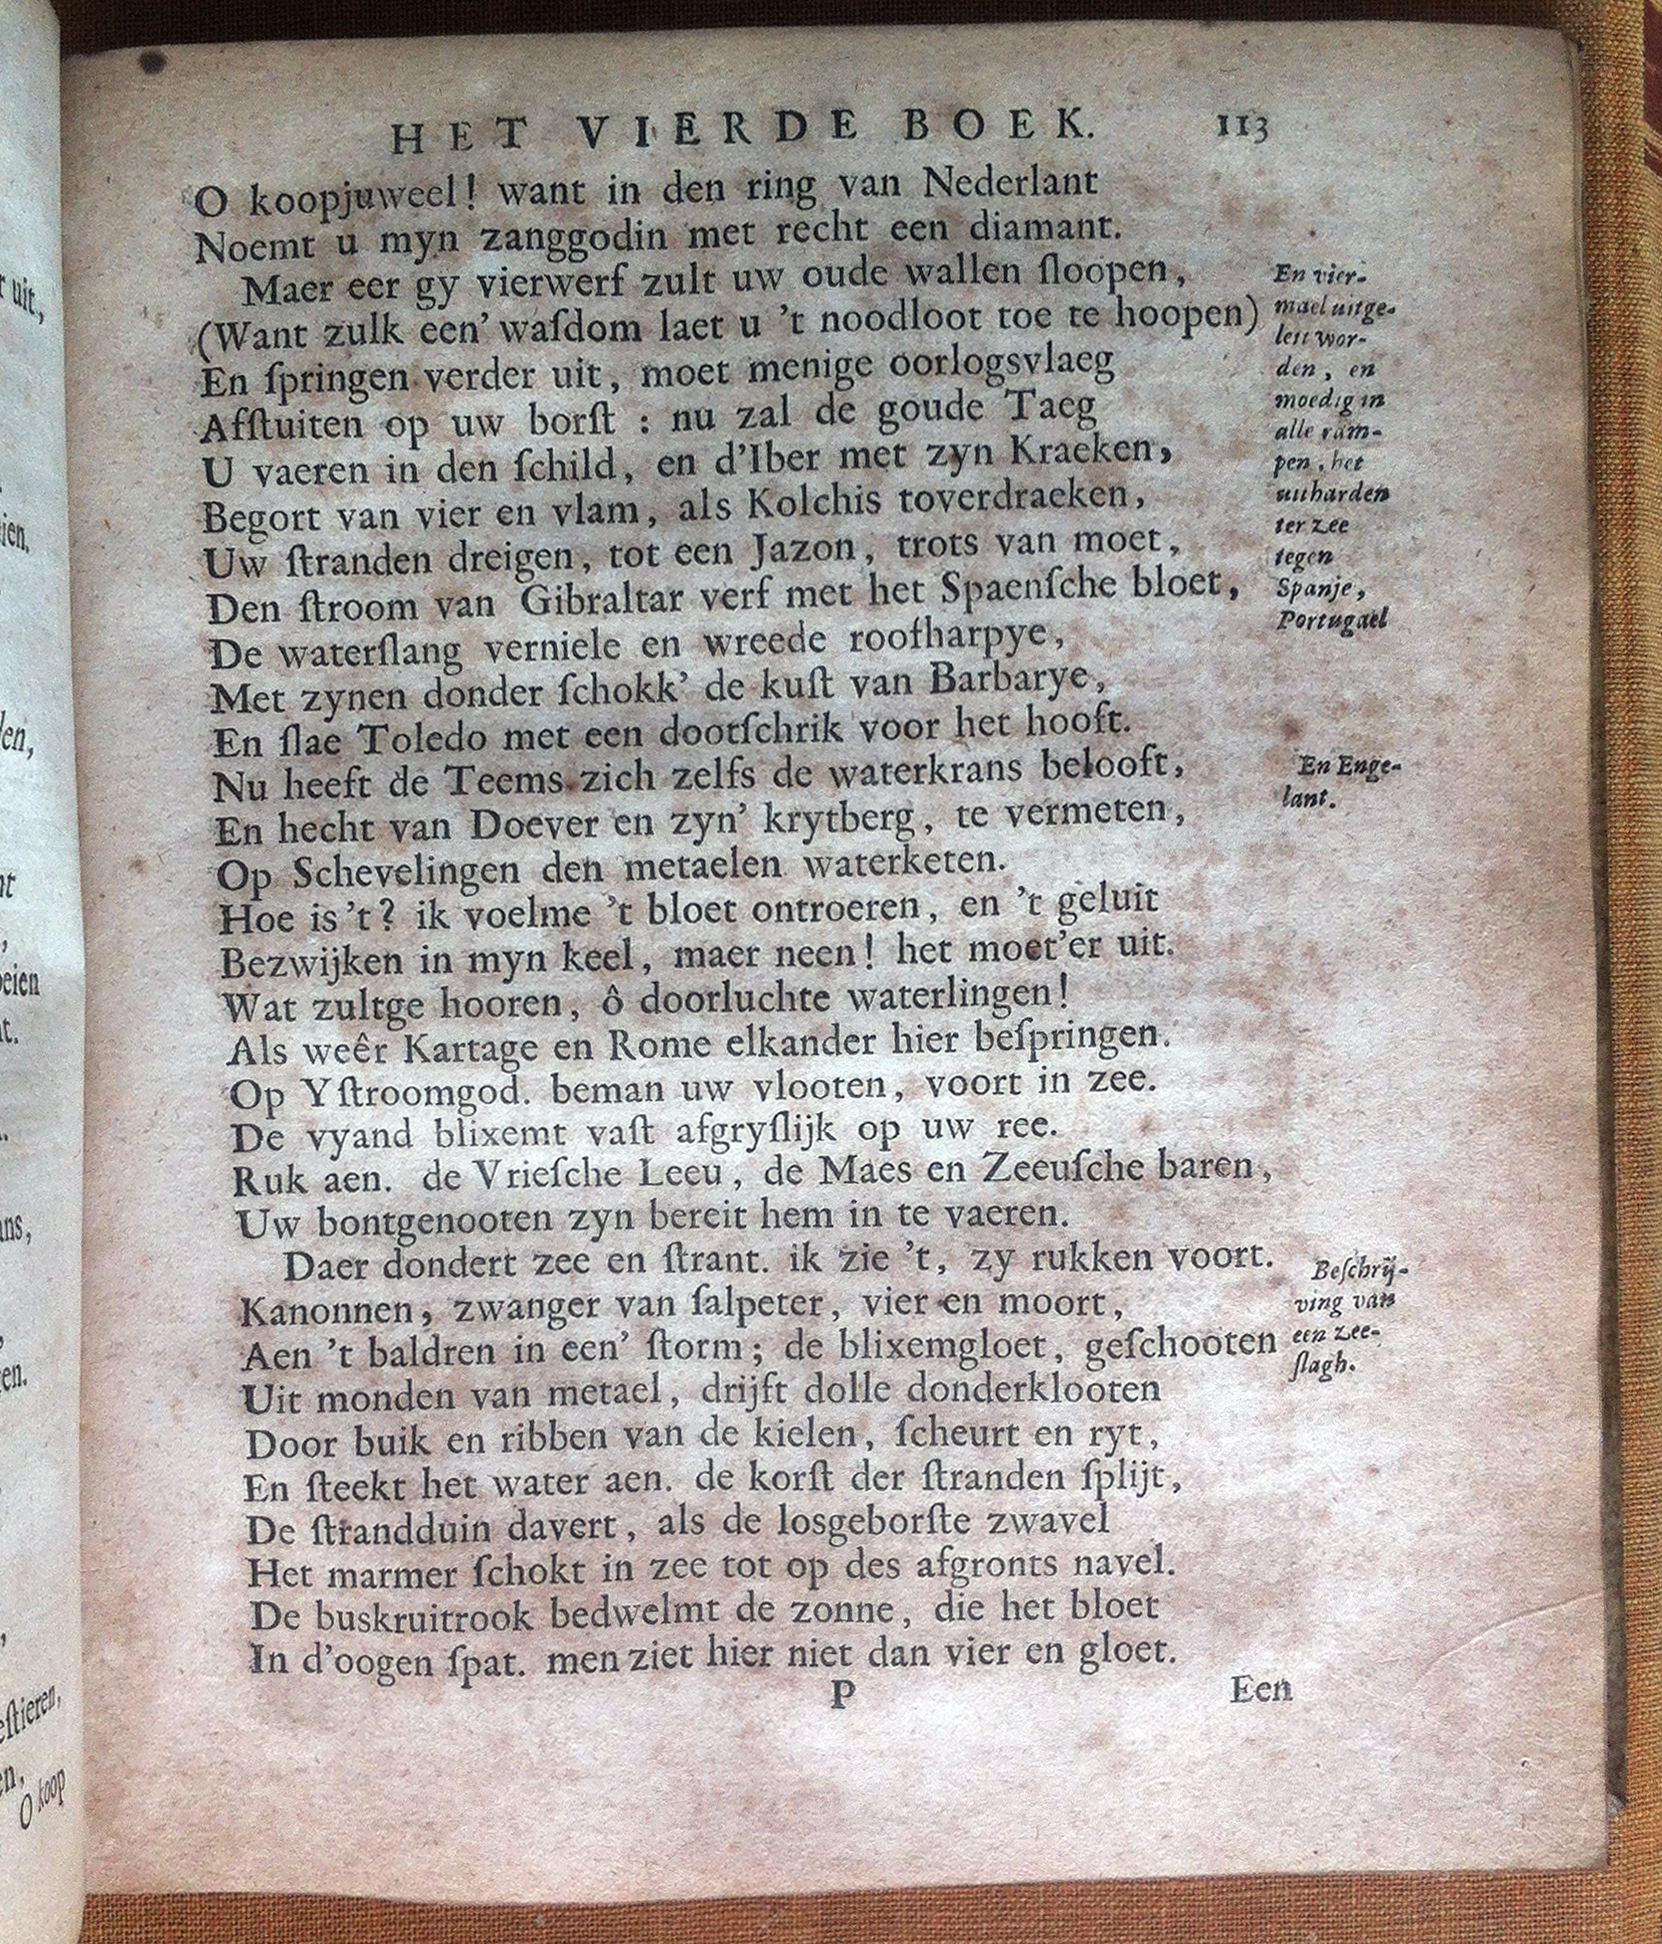 HET VIERDE BOEK. 113
O koopjuweel! want in den ring van Nederlant
Noemt u myn zanggodin met recht een diamant.
Maer eer gy vierwerf zult uw oude wallen ſloopen,
(Want zulk een' waſdom laet u 't noodloot toe te hoopen)
En ſpringen verder uit, moet menige oorlogsvlaeg
Afſtuiten op uw borſt : nu zal de goude Taeg
U vaeren in den ſchild, en d'Iber met zyn Kraeken,
Begort van vier en vlam, als Kolchis toverdraeken,
Uw ſtranden dreigen, tot een Jazon, trots van moet,
Den ſtroom van Gibraltar verf met het Spaenſche bloet,
De waterſlang verniele en wreede roofharpye,
Met zynen donder ſchokk' de kuſt van Barbarye,
En ſlae Toledo met een dootſchrik voor het hooft.
Nu heeft de Teems zich zelfs de waterkrans belooft,
En hecht van Doever en zyn' krytberg, te vermeten,
Op Schevelingen den metaelen waterketen.
Hoe is 't? ik voelme 't bloet ontroeren, en 't geluit
Bezwijken in myn keel, maer neen! het moet'er uit.
Wat zultge hooren, ô doorluchte waterlingen!
Als weêr Kartage en Rome elkander hier beſpringen.
Op Yſtroomgod. beman uw vlooten, voort in zee.
De vyand blixemt vaſt afgryſlijk op uw ree.
Ruk aen. de Vrieſche Leeu, de Maes en Zeeuſche baren,
Uw bontgenooten zyn bereit hem in te vaeren.
Daer dondert zee en ſtrant. ik zie 't, zy rukken voort.
Kanonnen, zwanger van ſalpeter, vier en moort,
Aen 't baldren in een' ſtorm; de blixemgloet, geſchooten
Uit monden van metael, drijft dolle donderklooten
Door buik en ribben van de kielen, ſcheurt en ryt,
En ſteekt het water aen. de korſt der ſtranden ſplijt,
De ſtrandduin davert, als de losgeborſte zwavel
Het marmer ſchokt in zee tot op des afgronts navel.
De buskruitrook bedwelmt de zonne, die het bloet
In d'oogen ſpat. men ziet hier niet dan vier en gloet.
P Een
En vier-
mael uitge-
leit wor-
den, en
moedig in
alle ram-
pen, het
uitharden
ter zee
tegen
Spanje,
Portugael
En Enge-
lant.
Beſchrij-
ving van
een zee-
ſlagh.
uit,
O koop